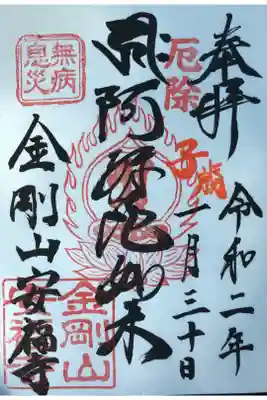 奉拝
令和二年
一月三十日
厄除
子歳
阿弥陀如来
無病
息災
金剛山安福寺
金剛山
安福寺